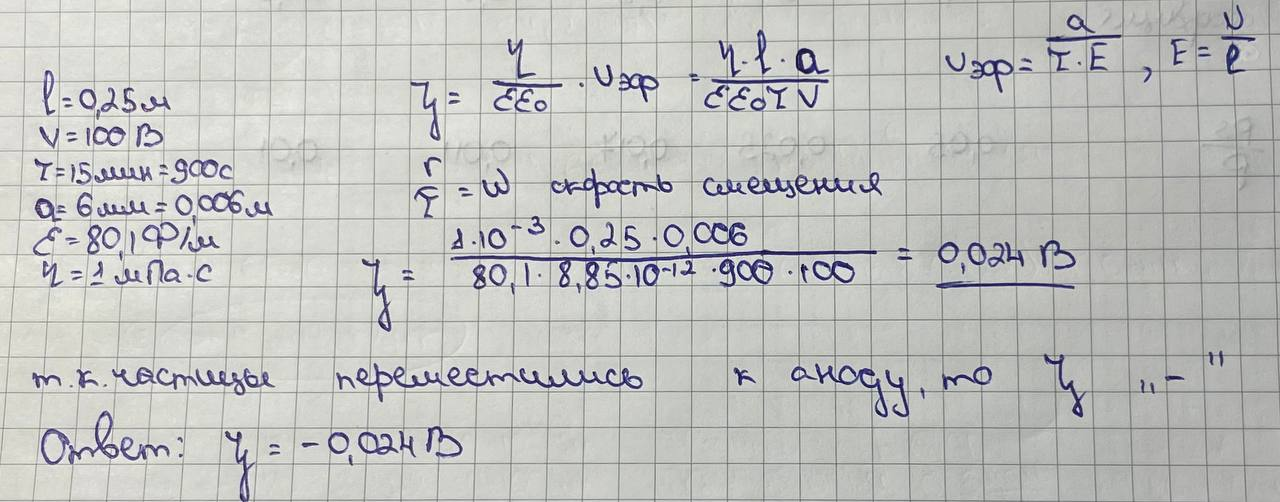 l = 0,25 м
V = 100 В
τ = 15 мин = 900 с
a = 6 мм = 0,006 м
ε = 80,1 Ф/м
η = 1 мПа·с
ζ = η/εε₀ · Uэф = η·l·a/εε₀τV
Uэф = a/τ·E , E = V/l
r/τ = W скорость смещения
ζ = 1·10⁻³·0,25·0,006/80,1·8,85·10⁻¹²·900·100 = 0,024 В
т.к. частицы переместились к аноду, то ζ „–"
Ответ: ζ = –0,024 В